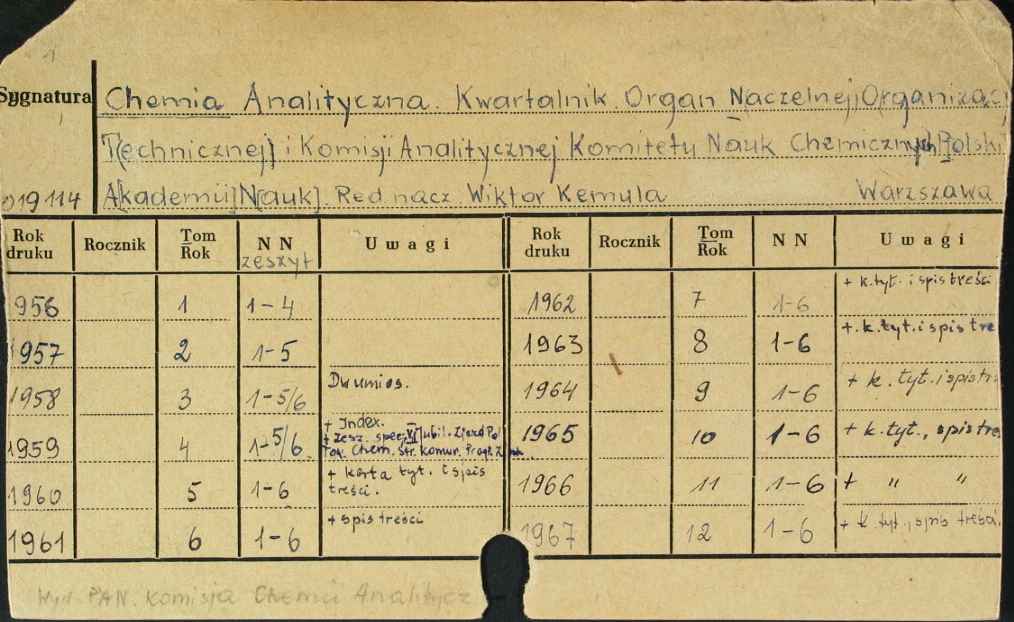 Sygnatura
Chemia Analityczna. Kwartalnik. Organ Naczelnej Organizacji
T[echnicznej] i Komisji Analitycznej Komitetu Nauk Chemicznych Polski
19114 A[kademii] N[auk]. Red nacz Wiktor Kemula Warszawa
Rok druku Rocznik Tom Rok NN zeszyt Uwagi Rok druku Rocznik Tom Rok NN Uwagi
956 1 1-4 1962 7 1-6 + k.tyt. i spis treści
1957 2 1-5 1963 8 1-6 + k.tyt. i spis tre
1958 3 1-5/6 Dwumies. 1964 9 1-6 + k. tyt. i spis tr
1959 4 1-5/6. + Index. 1965 10 1-6 + k.tyt., spis tre
+ zesz. spec. VI Jubil. Zjazd Pol
Tow. Chem. Str. komun.
1960 5 1-6 + karta tyt. i spis treści. 1966 11 1-6 + " "
1961 6 1-6 + spis treści 1967 12 1-6 + k tyt., spis treści.
Wyd. PAN. Komisja Chemii Analitycz